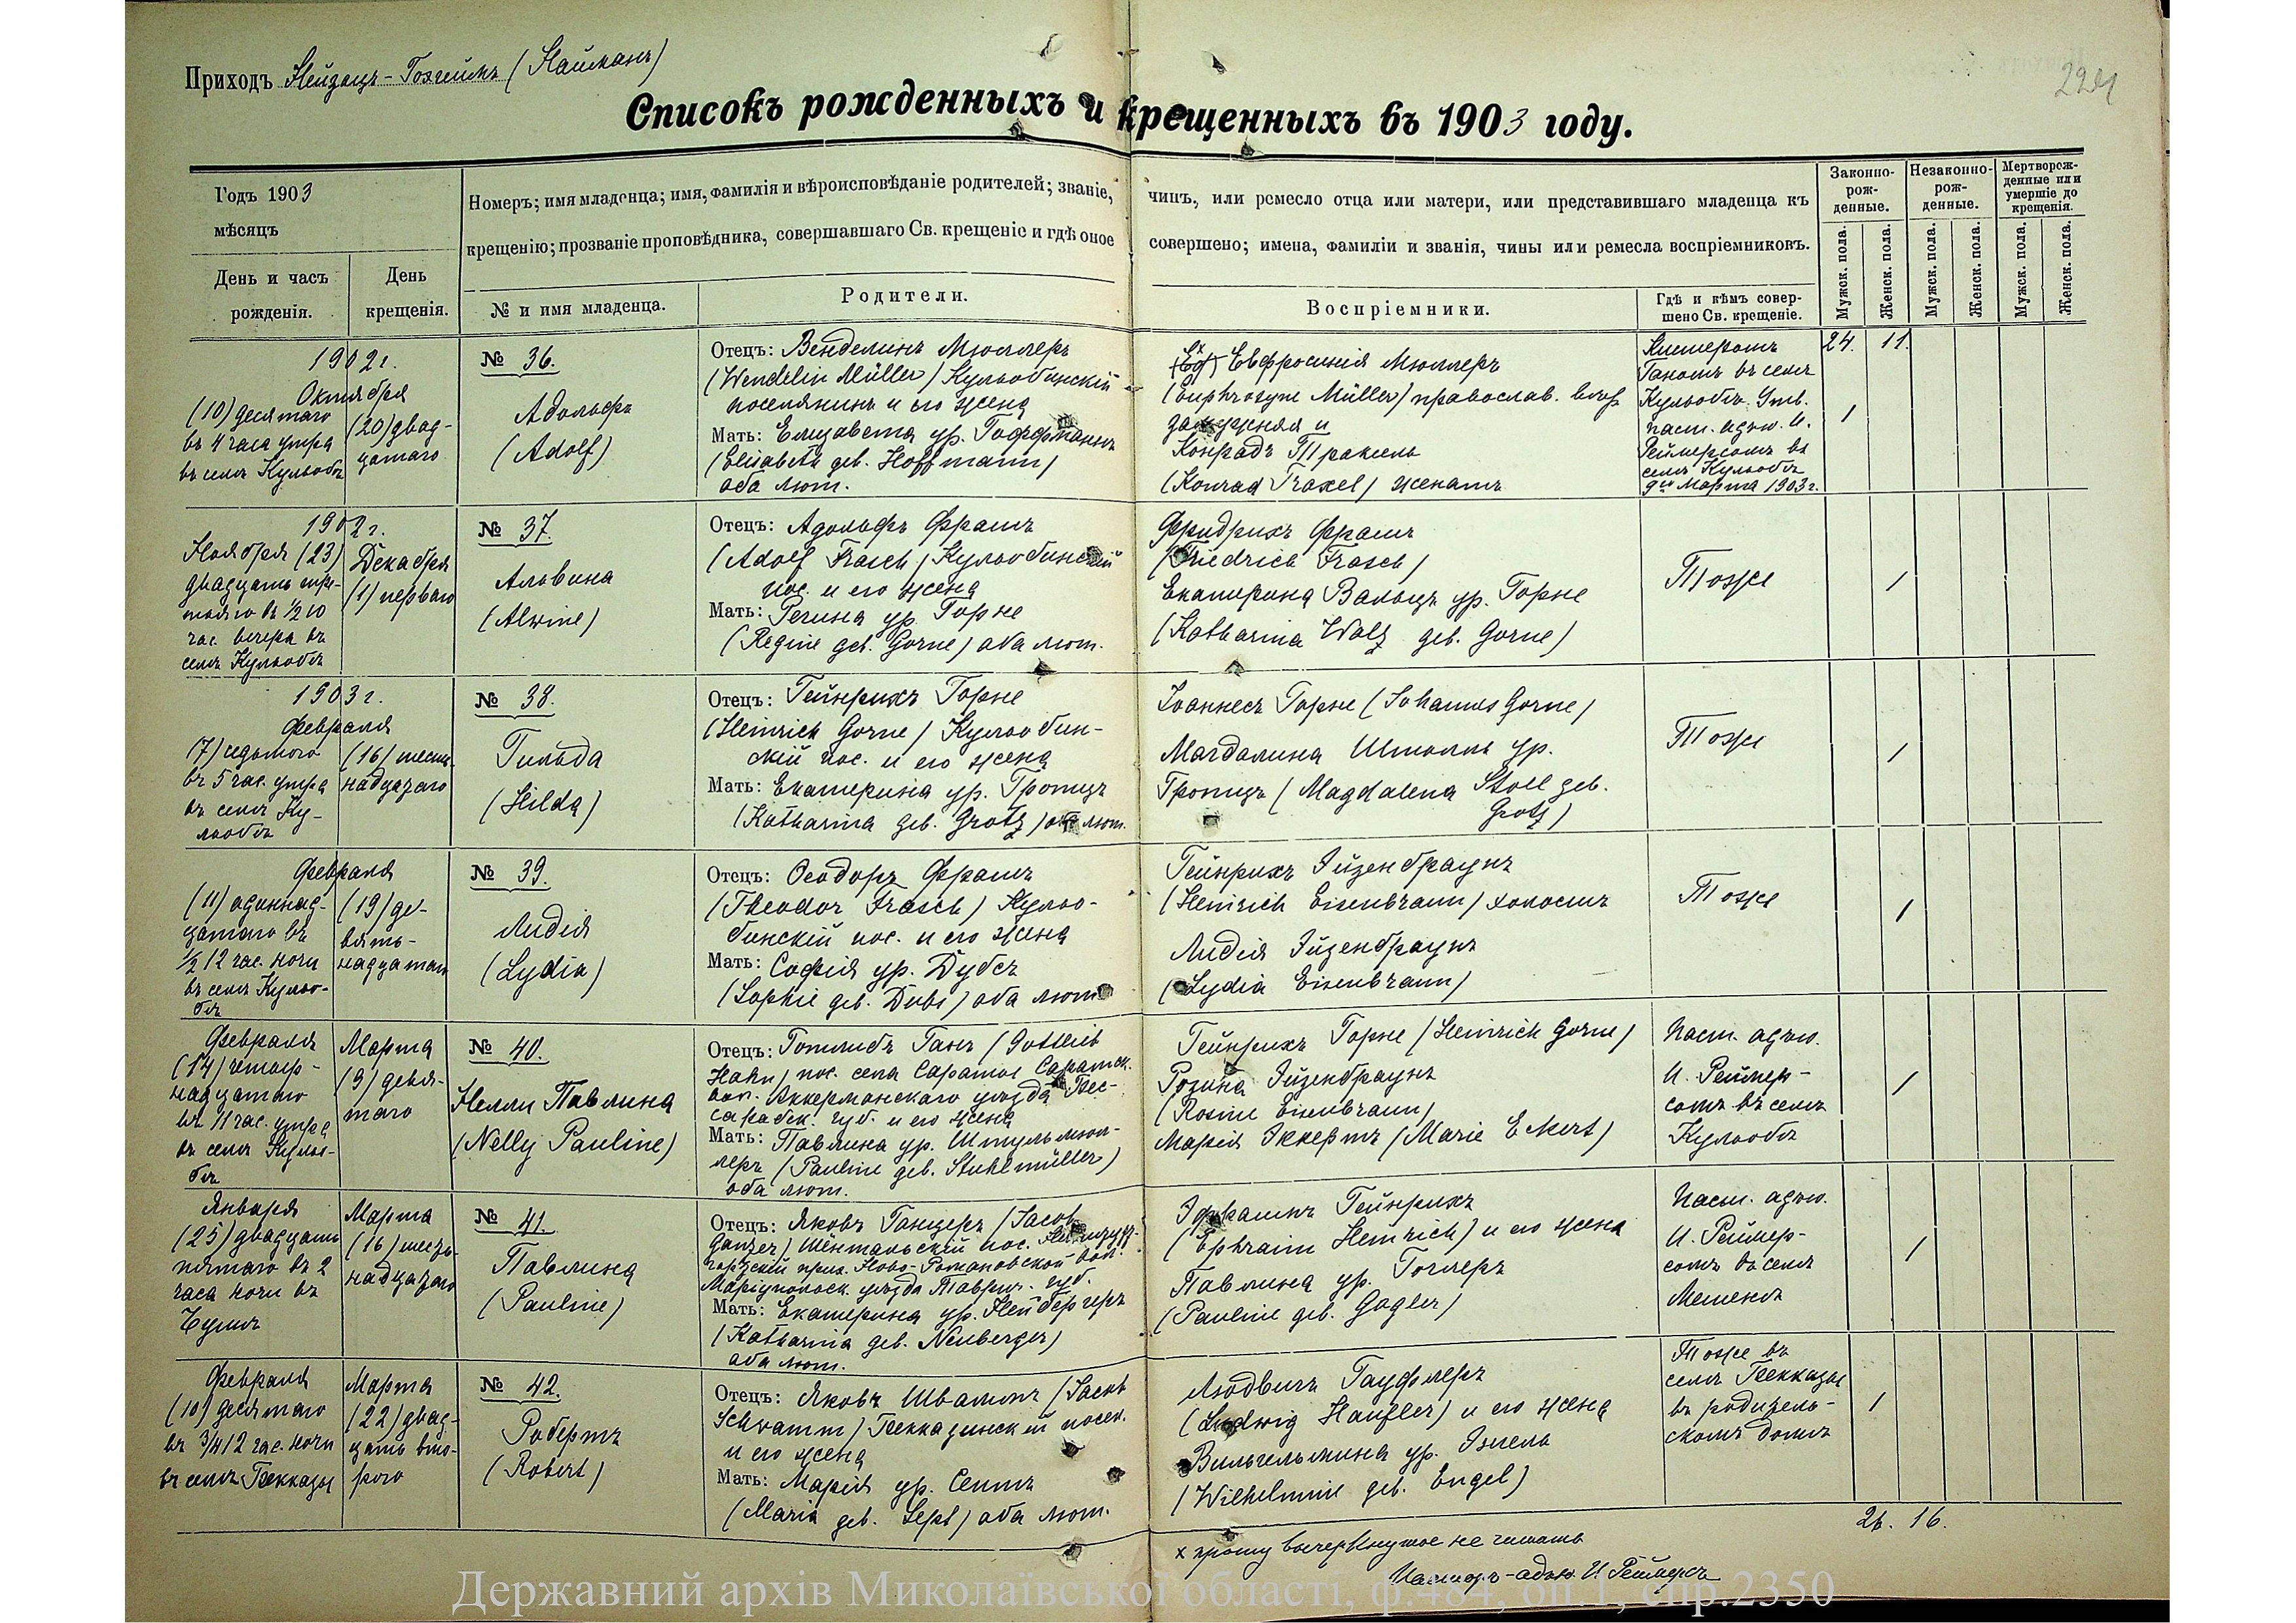 Приходъ Нейзацъ-Гохгеймъ (Найманъ)
2291
Списокъ рожденныхъ и крещенныхъ въ 1903 году.
Годъ 1903
мѣсяцъ
День и часъ
рожденія.
День
крещенія.
Номеръ; имя младенца; имя, фамилія и вѣроисповѣданіе родителей; званіе, чинъ, или ремесло отца или матери, или представившаго младенца къ
крещенію; прозваніе проповѣдника, совершавшаго Св. крещеніе и гдѣ оное совершено; имена, фамиліи и званія, чины или ремесла воспріемниковъ.
№ и имя младенца.
Родители.
Воспріемники.
Гдѣ и кѣмъ совер-
шено Св. крещеніе.
Законно-
рож-
денные.
Незаконно-
рож-
денные.
Мертворож-
денные или
умершіе до
крещенія.
Мужск. пола.
Женск. пола.
Мужск. пола.
Женск. пола.
Мужск. пола.
Женск. пола.
1902 г.
Октября
(10) десятаго
въ 4 часа утра
въ селѣ Кульобѣ
(20) двад-
цатаго
№ 36.
Адольфъ
(Adolf)
Отецъ: Венделинъ Мюллеръ
(Wendelin Müller) Кульобинскій
поселянинъ и его жена
Мать: Елизавета ур. Гоффманнъ
(Elisabeth geb. Hoffmann)
оба лют.
Евфросинія Мюллеръ
(Euphrosyne Müller) православ. вѣр.
замужняя и
Конрадъ Траксель
(Konrad Traxel) женатъ
Кистеромъ
Ганомъ въ селѣ
Кульобѣ. Утв.
паст. адъю. И.
Реймерсомъ въ
селѣ Кульобѣ
9го Марта 1903 г.
24. 11.
1
1902 г.
Ноября (23)
двадцать тре-
тьяго въ ½ 10
час. вечера въ
селѣ Кульобѣ
Декабря
(1) перваго
№ 37.
Альвина
(Alwine)
Отецъ: Адольфъ Фрашъ
(Adolf Frasch) Кульобинскій
пос. и его жена
Мать: Регина ур. Горне
(Regine geb. Gorne) оба лют.
Фридрихъ Фрашъ
(Friedrich Frasch)
Екатерина Вальцъ ур. Горне
(Katharina Walz geb. Gorne)
Тоже
1
1903 г.
Февраля
(7) седьмого
въ 5 час. утра
въ селѣ Ку-
льобѣ
(16) шест-
надцатаго
№ 38.
Гильда
(Hilda)
Отецъ: Гейнрихъ Горне
(Heinrich Gorne) Кульобин-
скій пос. и его жена
Мать: Екатерина ур. Гротцъ
(Katharina geb. Grotz) оба лют.
Іоаннесъ Горне (Johannes Gorne)
Магдалина Штолль ур.
Гротцъ (Magdalena Stoll geb.
Grotz)
Тоже
1
Февраля
(11) одиннад-
цатаго въ
½ 12 час. ночи
въ селѣ Кульо-
бѣ
(19) де-
вять-
надцатаго
№ 39.
Лидія
(Lydia)
Отецъ: Ѳеодоръ Фрашъ
(Theodor Frasch) Кульо-
бинскій пос. и его жена
Мать: Софія ур. Дубсъ
(Sophie geb. Dubs) оба лют.
Гейнрихъ Эйзенбраунъ
(Heinrich Eisenbraun) холостъ
Лидія Эйзенбраунъ
(Lydia Eisenbraun)
Тоже
1
Февраля
(14) четыр-
надцатаго
въ 11 час. утра
въ селѣ Кульо-
бѣ
Марта
(9) девя-
таго
№ 40.
Нелли Павлина
(Nelly Pauline)
Отецъ: Готлибъ Ганъ (Gottlieb
Hahn) пос. села Саратов. Саратск.
вол. Аккерманскаго уѣзда Бес-
сарабск. губ. и его жена
Мать: Павлина ур. Штульмюл-
леръ (Pauline geb. Stuhlmüller)
оба лют.
Гейнрихъ Горне (Heinrich Gorne)
Розина Эйзенбраунъ
(Rosine Eisenbraun)
Марія Эккертъ (Marie Eckert)
Паст. адъю.
И. Реймер-
сомъ въ селѣ
Кульобѣ
1
Января
(25) двадцать
пятаго въ 2
часа ночи въ
Марта
(16) шест-
надцатаго
№ 41.
Павлина
(Pauline)
Отецъ: Яковъ Ганцеръ (Jacob
Ganzer) Шёнтальскій пос.
прих. Ново-Романовской вол.
Маріупольск. уѣзда Таврич. губ.
Мать: Екатерина ур. Нейбергеръ
(Katharina geb. Neuberger)
оба лют.
Эфраимъ Гейнрихъ
(Ephraim Heinrich) и его жена
Павлина ур. Гоглеръ
(Pauline geb. Gogler)
Паст. адъю.
И. Реймер-
сомъ въ селѣ
1
Февраля
(10) десятаго
въ ¾ 12 час. ночи
въ селѣ Бекказы
Марта
(22) двад-
цать вто-
рого
№ 42.
Робертъ
(Robert)
Отецъ: Яковъ Шваммъ (Jacob
Schwamm) Бекказинскій посел.
и его жена
Мать: Марія ур. Септъ
(Maria geb. Sept) оба лют.
Людвигъ Гауфлеръ
(Ludwig Haufler) и его жена
Вильгельмина ур. Энгель
(Wilhelmine geb. Engel)
Тоже въ
селѣ Бекказы
въ родитель-
скомъ домѣ
1
26. 16.
x прошу вычеркнутое не читать
Пасторъ-адъю. И. Реймерсъ
Державний архів Миколаївської області, ф.484, оп.1, спр.2350